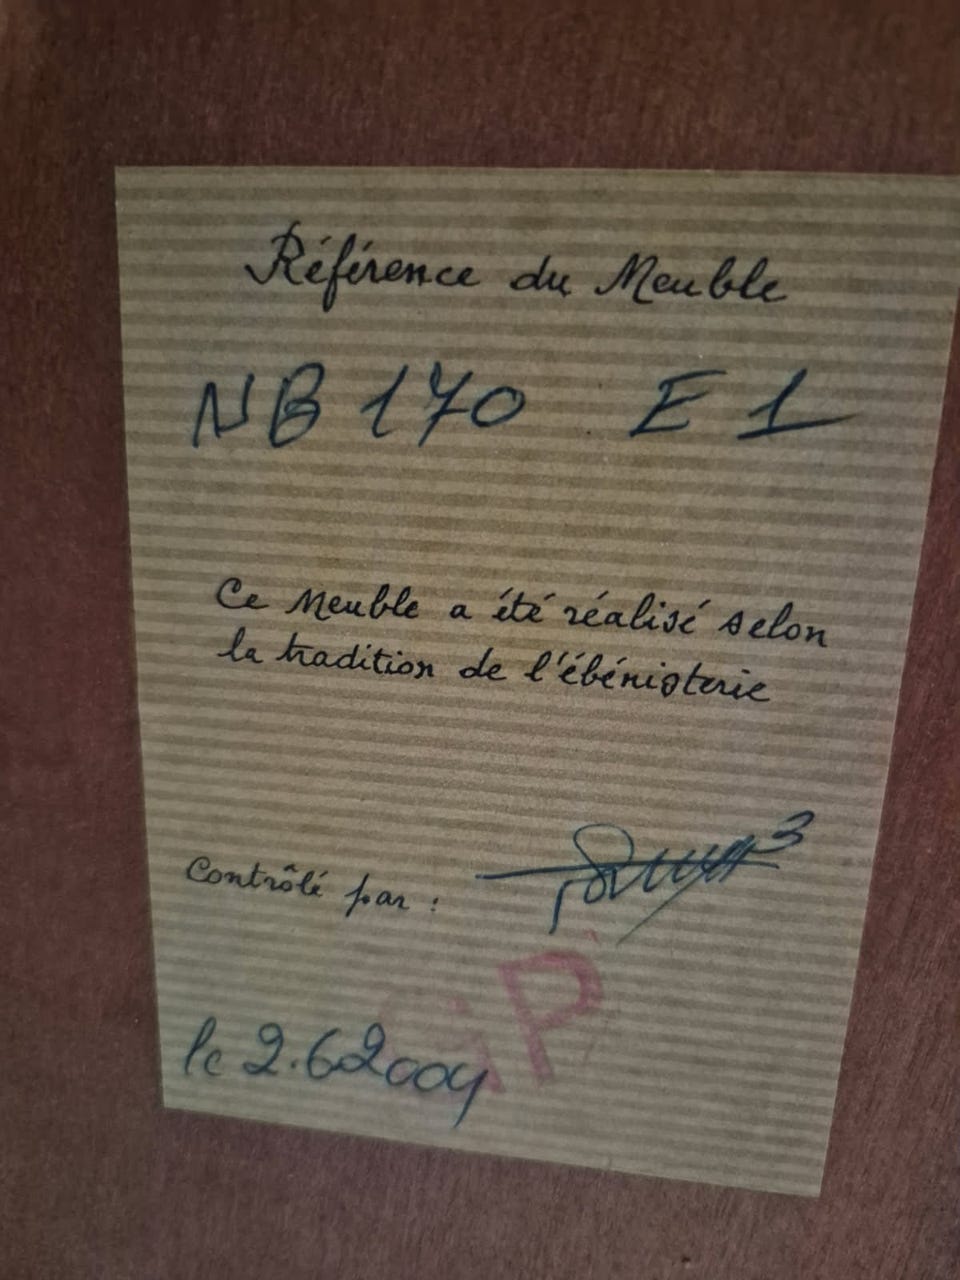 Référence du Meuble
NB 170 E1
Ce Meuble a été réalisé selon
la tradition de l'ébénisterie
Contrôlé par :
iP
le 2.6 2004